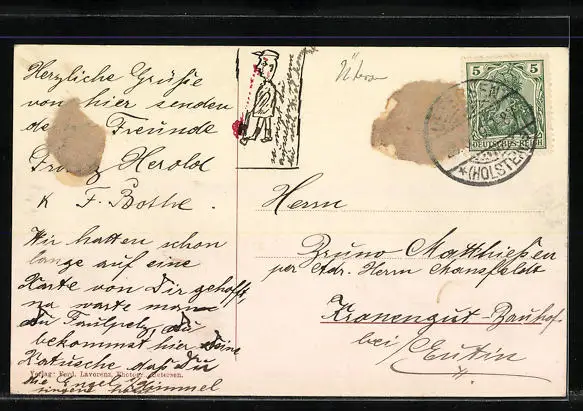 Herzliche Grüße
von hier senden
deine Freunde
Franz Herold
K F. Bothe.
Wir hatten schon
lange auf eine
Karte von Dir gehofft,
na warte man
du Faulpelz, du
bekommst hier deine
Katusche daß Du
die Engel i/Himmel
singen hörst
Verlag: Ferd. Lavorenz, Photogr. Uetersen.
5 5
DEUTSCHES REICH
*(HOLSTEIN)
Herrn
Bruno Matthießen
per Adr. Herrn Mansfeldt
Kronengut-Bauhof
bei Eutin